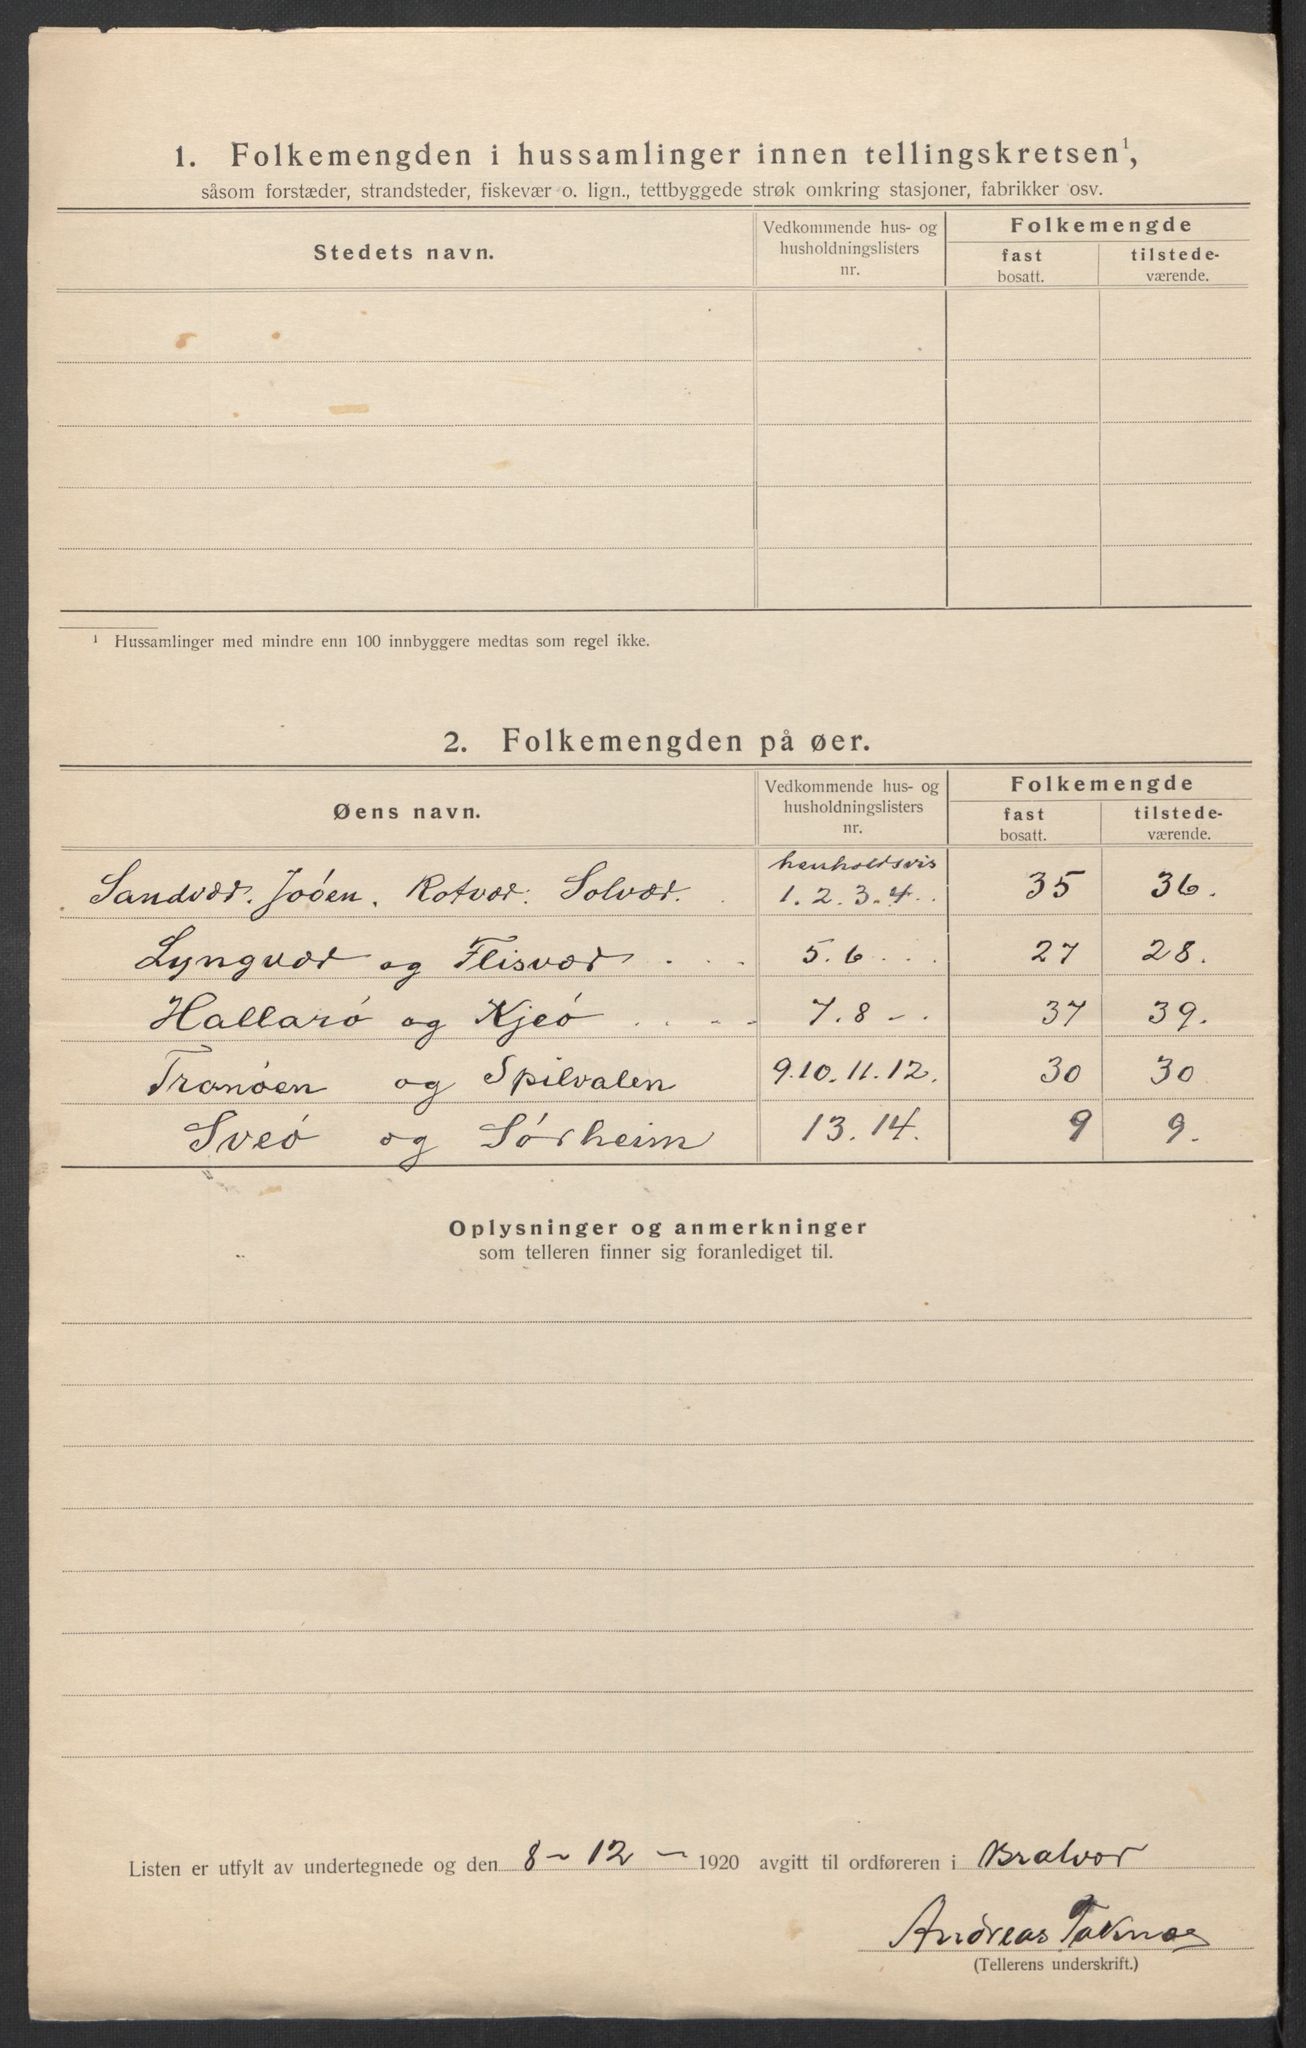 1. Folkemengden i hussamlinger innen tellingskretsen¹,
såsom forstæder, strandsteder, fiskevær o. lign., tettbyggede strøk omkring stasjoner, fabrikker osv.
Stedets navn.
Vedkommende hus- og husholdningslisters nr.
Folkemengde
fast bosatt.
tilstede- værende.
¹ Hussamlinger med mindre enn 100 innbyggere medtas som regel ikke.
2. Folkemengden på øer.
Øens navn.
Vedkommende hus- og husholdningslisters nr.
Folkemengde
fast bosatt.
tilstede- værende.
henholdsvis
Sandvær. Joøen. Kotvær. Solvær. 1. 2. 3. 4. 35 36.
Lyngvær og Flisvær 5. 6 27 28.
Hallarö og Kjeö 7. 8 37 39.
Tranöen og Spilvalen 9. 10. 11. 12. 30 30
Sveö og Sörheim 13. 14. 9 9.
Oplysninger og anmerkninger
som telleren finner sig foranlediget til.
Listen er utfylt av undertegnede og den 8 - 12 - 1920 avgitt til ordføreren i Bratvær
Andreas Taknæs
(Tellerens underskrift.)